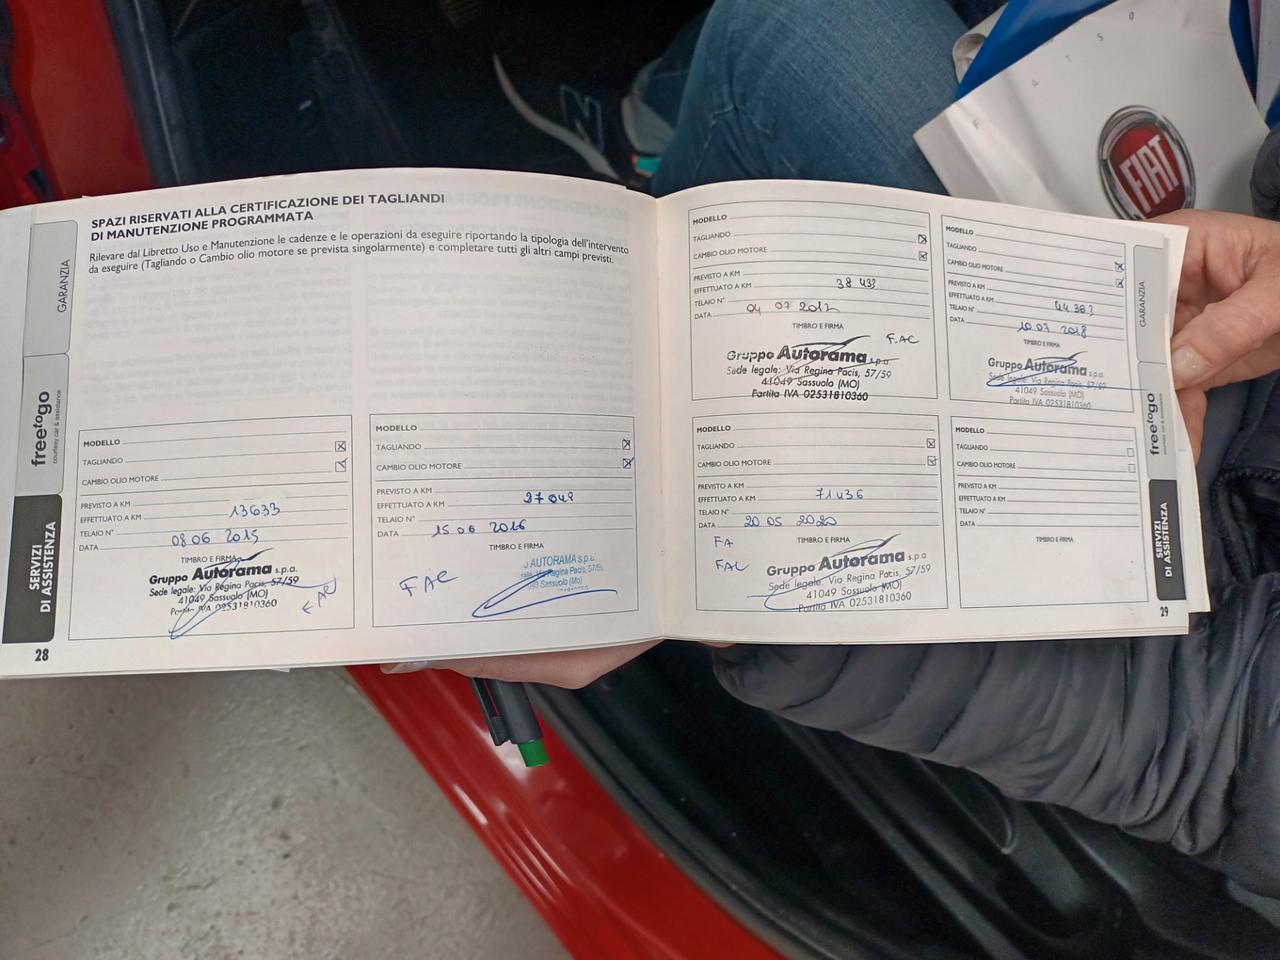 SPAZI RISERVATI ALLA CERTIFICAZIONE DEI TAGLIANDI
DI MANUTENZIONE PROGRAMMATA
Rilevare dal Libretto Uso e Manutenzione le cadenze e le operazioni da eseguire riportando la tipologia dell'intervento
da eseguire (Tagliando o Cambio olio motore se prevista singolarmente) e completare tutti gli altri campi previsti.
GARANZIA
freetogo
courtesy car & assistance
SERVIZI
DI ASSISTENZA
28
MODELLO
TAGLIANDO
CAMBIO OLIO MOTORE
PREVISTO A KM
EFFETTUATO A KM 13633
TELAIO N°
DATA 08 06 2015
TIMBRO E FIRMA
Gruppo Autorama s.p.a.
Sede legale: Via Regina Pacis, 57/59
41049 Sassuolo (MO)
Partita IVA 02531810360
FAC
MODELLO
TAGLIANDO
CAMBIO OLIO MOTORE
PREVISTO A KM
EFFETTUATO A KM 27048
TELAIO N°
DATA 15 06 2016
TIMBRO E FIRMA
AUTORAMA s.p.a.
Via Regina Pacis, 57/59
Sassuolo (Mo)
FAC
MODELLO
TAGLIANDO
CAMBIO OLIO MOTORE
PREVISTO A KM
EFFETTUATO A KM 38 433
TELAIO N°
DATA 04 07 2017
TIMBRO E FIRMA
F.AC
Gruppo Autorama s.p.a.
Sede legale: Via Regina Pacis, 57/59
41049 Sassuolo (MO)
Partita IVA 02531810360
MODELLO
TAGLIANDO
CAMBIO OLIO MOTORE
PREVISTO A KM
EFFETTUATO A KM 44 383
TELAIO N°
DATA 10 07 2018
TIMBRO E FIRMA
Gruppo Autorama s.p.a.
Sede legale: Via Regina Pacis, 57/59
41049 Sassuolo (MO)
Partita IVA 02531810360
MODELLO
TAGLIANDO
CAMBIO OLIO MOTORE
PREVISTO A KM
EFFETTUATO A KM 71436
TELAIO N°
DATA 20 05 2020
TIMBRO E FIRMA
FA
FAC
Gruppo Autorama s.p.a.
Sede legale: Via Regina Pacis, 57/59
41049 Sassuolo (MO)
Partita IVA 02531810360
MODELLO
TAGLIANDO
CAMBIO OLIO MOTORE
PREVISTO A KM
EFFETTUATO A KM
TELAIO N°
DATA
TIMBRO E FIRMA
GARANZIA
freetogo
courtesy car & assistance
SERVIZI
DI ASSISTENZA
29
FIAT
N